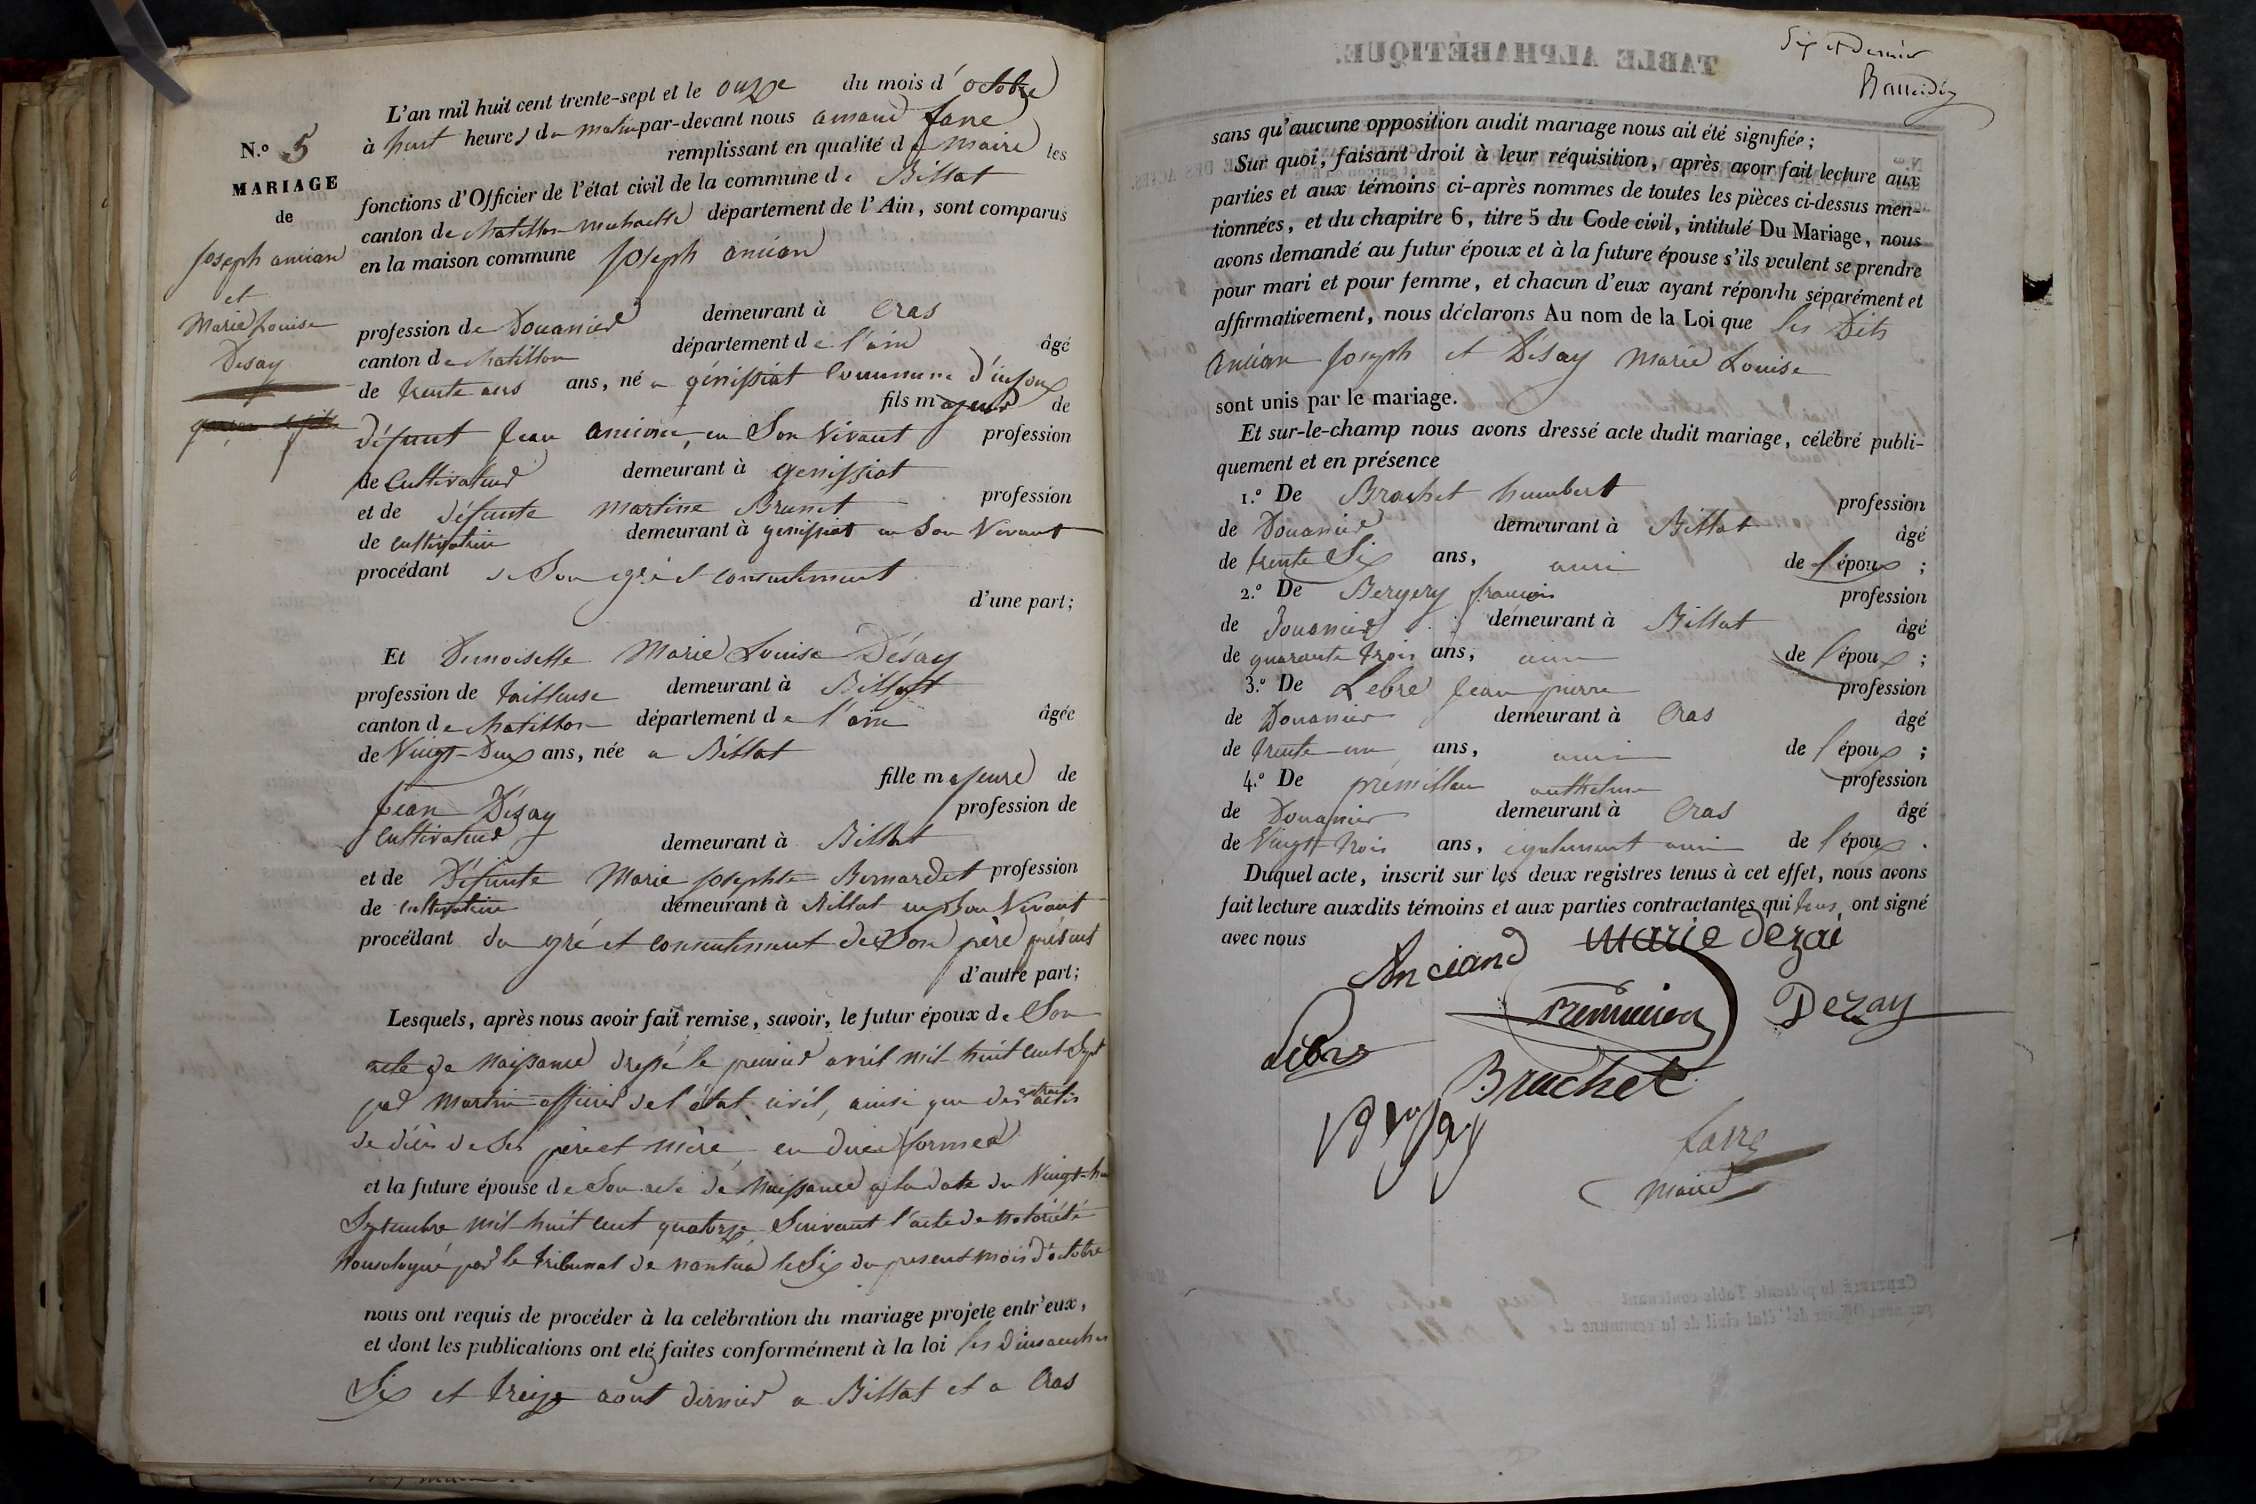 N.o 5
MARIAGE
de
Joseph ancian
et
Marie Louise
Desay
L'an mil huit cent trente-sept et le onze du mois d'octobre
à huit heures du matin par-devant nous amand favre
remplissant en qualité de Maire les
fonctions d'Officier de l'état civil de la commune de Billat
canton de chatillon michaille département de l'Ain, sont comparus
en la maison commune Joseph ancian
profession de Douanier demeurant à Cras
canton de chatillon département de l'ain âgé
de trente ans ans, né a génissiat Commune d'injoux
fils majeur de
défunt Jean ancian, en Son Vivant profession
de Cultivateur demeurant à genissiat
et de défunte martine Brunet profession
de cultivatrice demeurant à genissiat en Son Vivant
procédant de Son gré et consentement
d'une part;
Et Demoiselle Marie Louise Désay
profession de tailleuse demeurant à Billat
canton de chatillon département de l'ain âgée
de Vingt-Deux ans, née a Billat
fille majeure de
Jean Dézay profession de
Cultivateur demeurant à Billat
et de Défunte Marie Josephte Bernardet profession
de cultivatrice demeurant à Billat en Son Vivant
procédant du gré et consentement de Son père présent
d'autre part;
Lesquels, après nous avoir fait remise, savoir, le futur époux de Son
acte de Naissance dressé le premier avril mil huit cent Sept
par Martin officier de l'état civil, ainsi que des extraits actes
de décès de Ses père et mère, en due forme
et la future épouse de Son acte de Naissance a la date du Vingt
Septembre mil huit cent quatorze Suivant l'acte de notoriété
homologué par le tribunal de nantua le Six du present mois d'octobre
nous ont requis de procéder à la celébration du mariage projete entr'eux,
et dont les publications ont eté faites conformément à la loi les dimanches
Six et treize aout dernier a Billat et a Cras
TABLE ALPHABÉTIQUE.
Six et Dernier
sans qu'aucune opposition audit mariage nous ait été signifiée;
Sur quoi, faisant droit à leur réquisition, après avoir fait lecture aux
parties et aux témoins ci-après nommes de toutes les pièces ci-dessus men-
tionnées, et du chapitre 6, titre 5 du Code civil, intitulé Du Mariage, nous
avons demandé au futur époux et à la future épouse s'ils veulent se prendre
pour mari et pour femme, et chacun d'eux ayant répondu séparément et
affirmativement, nous déclarons Au nom de la Loi que les Dits
Ancian Joseph et Désay Marie Louise
sont unis par le mariage.
Et sur-le-champ nous avons dressé acte dudit mariage, célébré publi-
quement et en présence
1.o De Brachet humbert profession
de Douanier demeurant à Billat âgé
de trente Six ans, ami de l'époux;
2.o De Bergery francois profession
de Douanier demeurant à Billat âgé
de quarante trois ans, ami de l'époux;
3.o De Lebre Jean pierre profession
de Douanier demeurant à Cras âgé
de trente-un ans, ami de l'époux;
4.o De prémillieu anthelme profession
de Douanier demeurant à Cras âgé
de Vingt-trois ans, egalement ami de l'époux.
Duquel acte, inscrit sur les deux registres tenus à cet effet, nous avons
fait lecture auxdits témoins et aux parties contractantes qui tous ont signé
avec nous
Anciand marie dezai
Dezay
Brachet
favre
maire